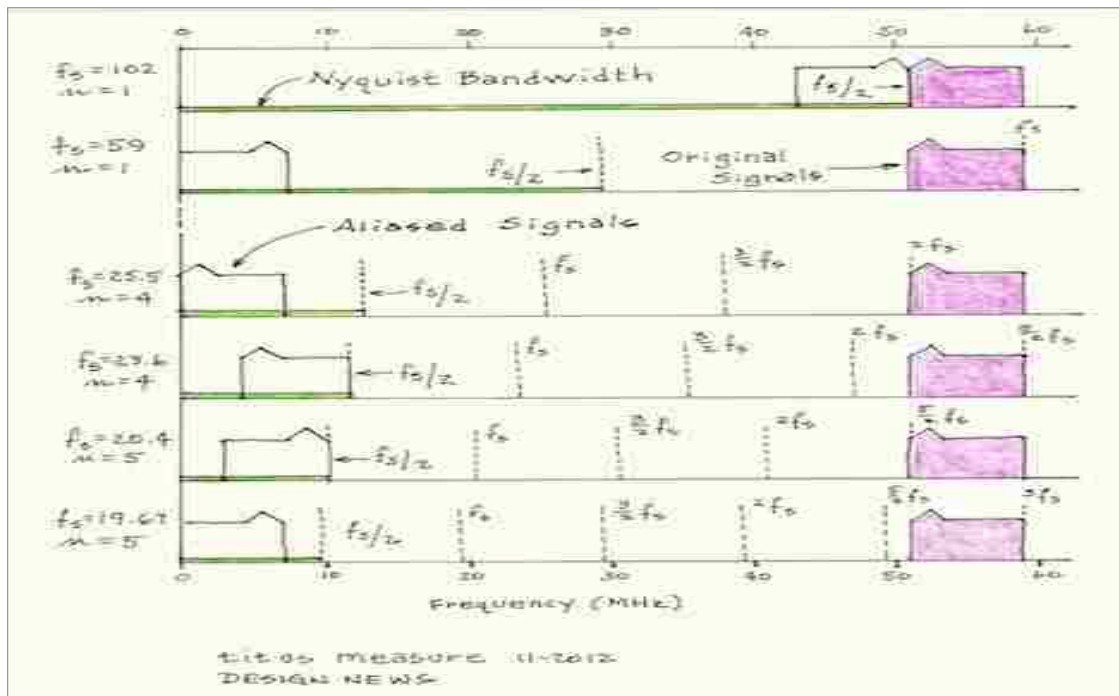 0 10 20 30 40 50 60
fs=102
n=1
Nyquist Bandwidth
fs/2
fs=59
n=1
fs/2
Original
Signals
fs
Aliased Signals
fs=25.5
n=4
fs/2
fs
3/2 fs
2fs
fs=23.6
n=4
fs/2
fs
3/2 fs
2fs
5/2 fs
fs=20.4
n=5
fs/2
fs
3/2 fs
2fs
5/2 fs
fs=19.67
n=5
fs/2
fs
3/2 fs
2fs
5/2 fs
3fs
0 10 20 30 40 50 60
Frequency (MHz)
measure 11-2012
DESIGN NEWS